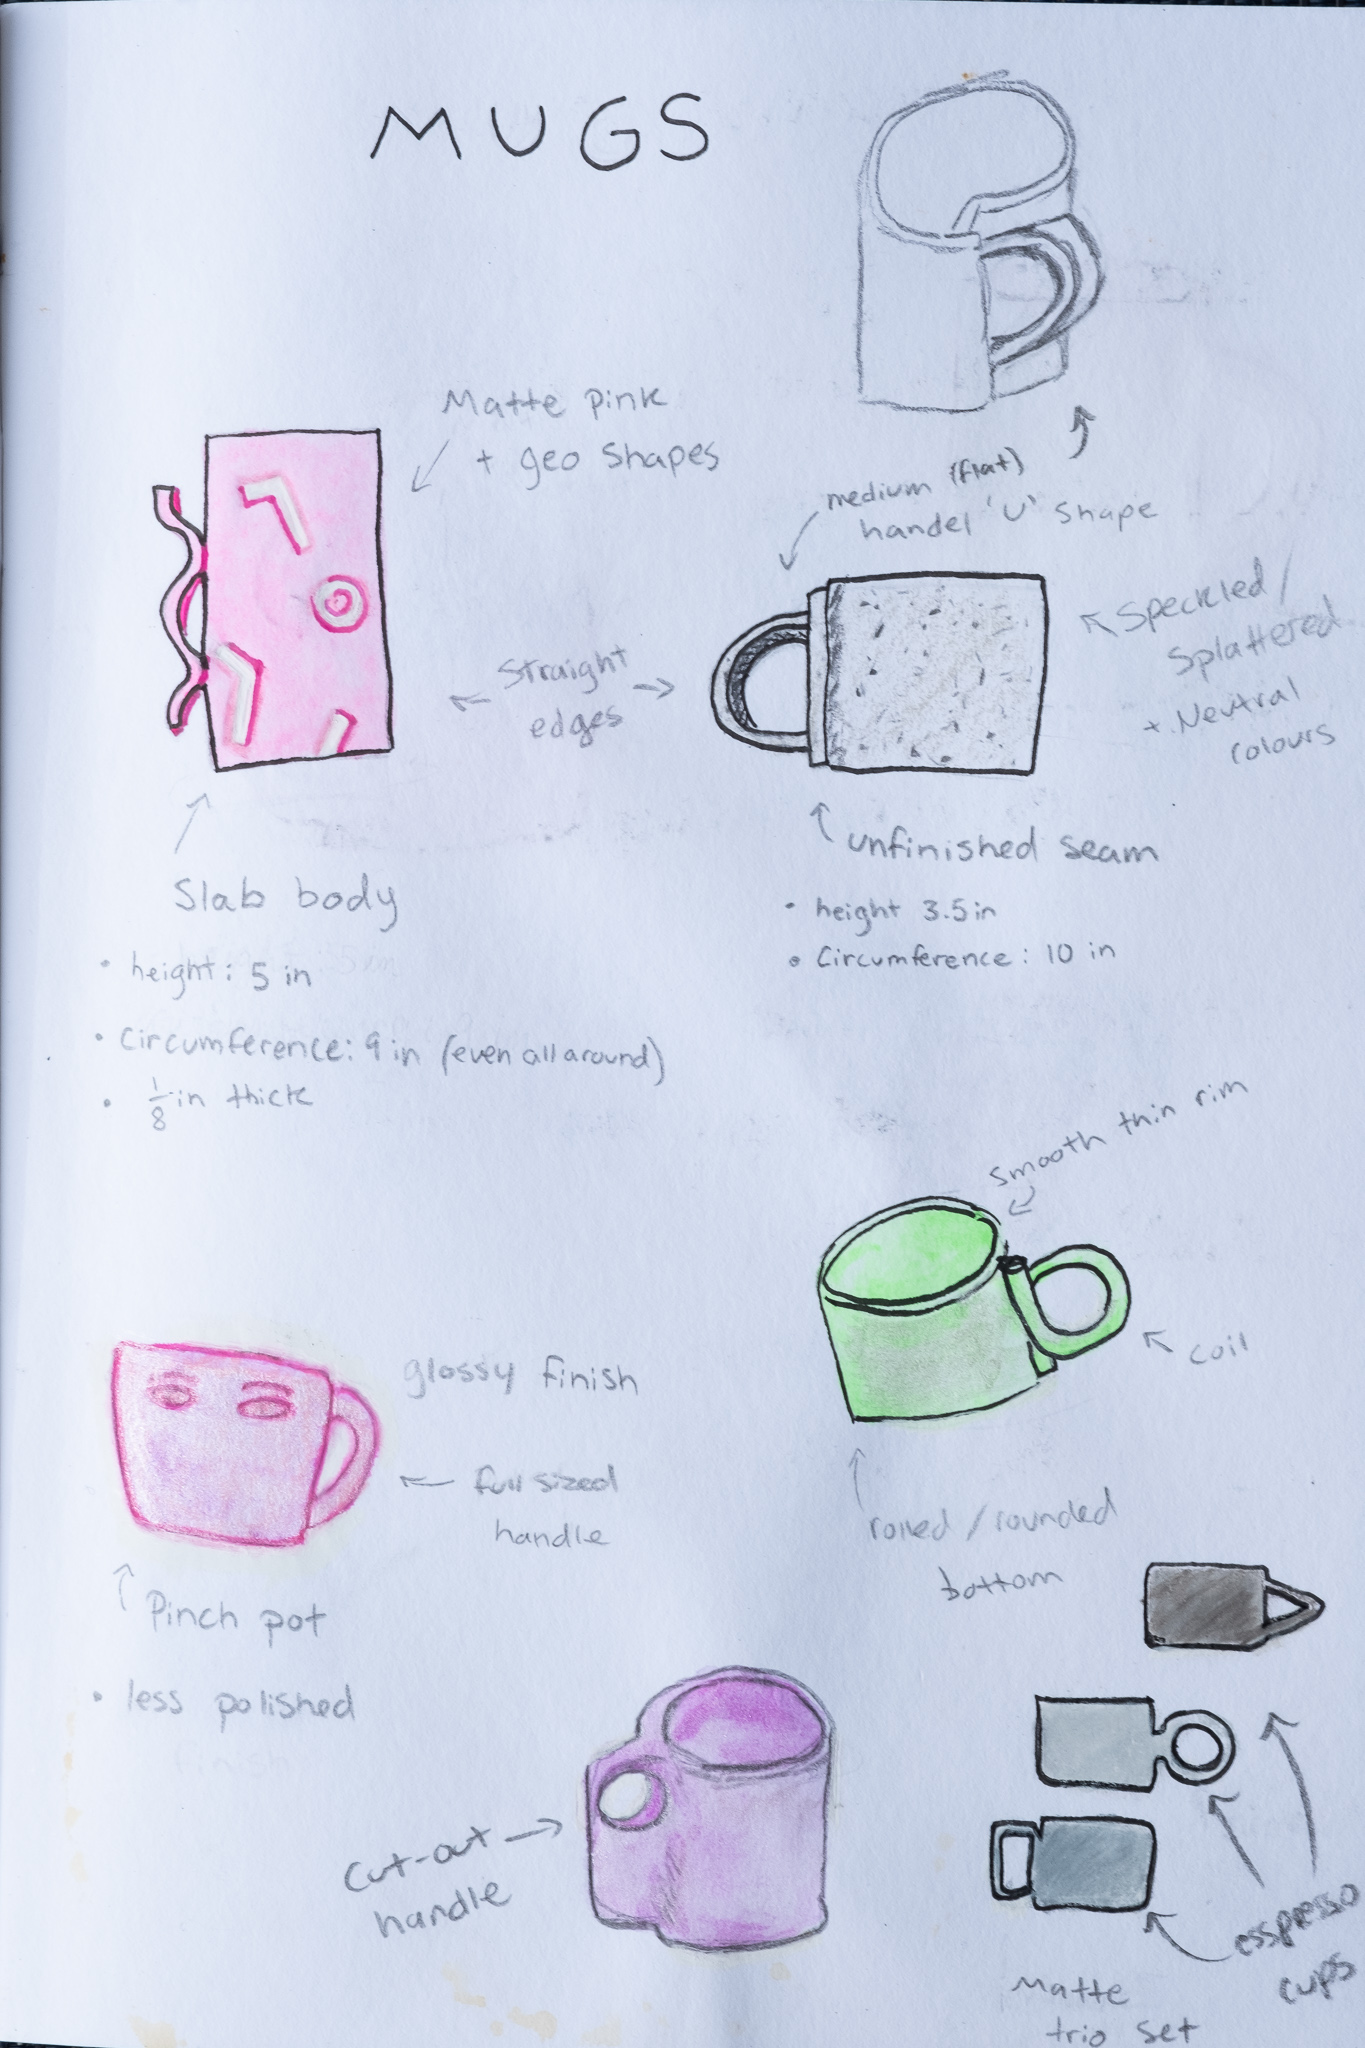 MUGS
Matte pink
+ geo shapes
medium (flat)
handel 'U' shape
Straight
edges
Speckled /
Splattered
+ Neutral
colours
Slab body
• height: 5 in
• Circumference: 9 in (even all around)
• 1/8 in thick
unfinished seam
• height 3.5 in
• Circumference: 10 in
smooth thin rim
coil
rolled / rounded
bottom
glossy finish
full sized
handle
Pinch pot
• less polished
finish
Cut-out
handle
esspresso
cups
Matte
trio set